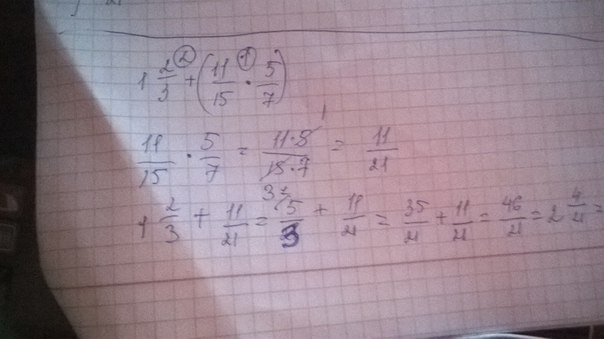 1 2/3 + (11/15 · 5/7)
11/15 · 5/7 = 11·5/15·7 = 11/21
1 2/3 + 11/21 = 5/3 + 11/21 = 35/21 + 11/21 = 46/21 = 2 4/21 =